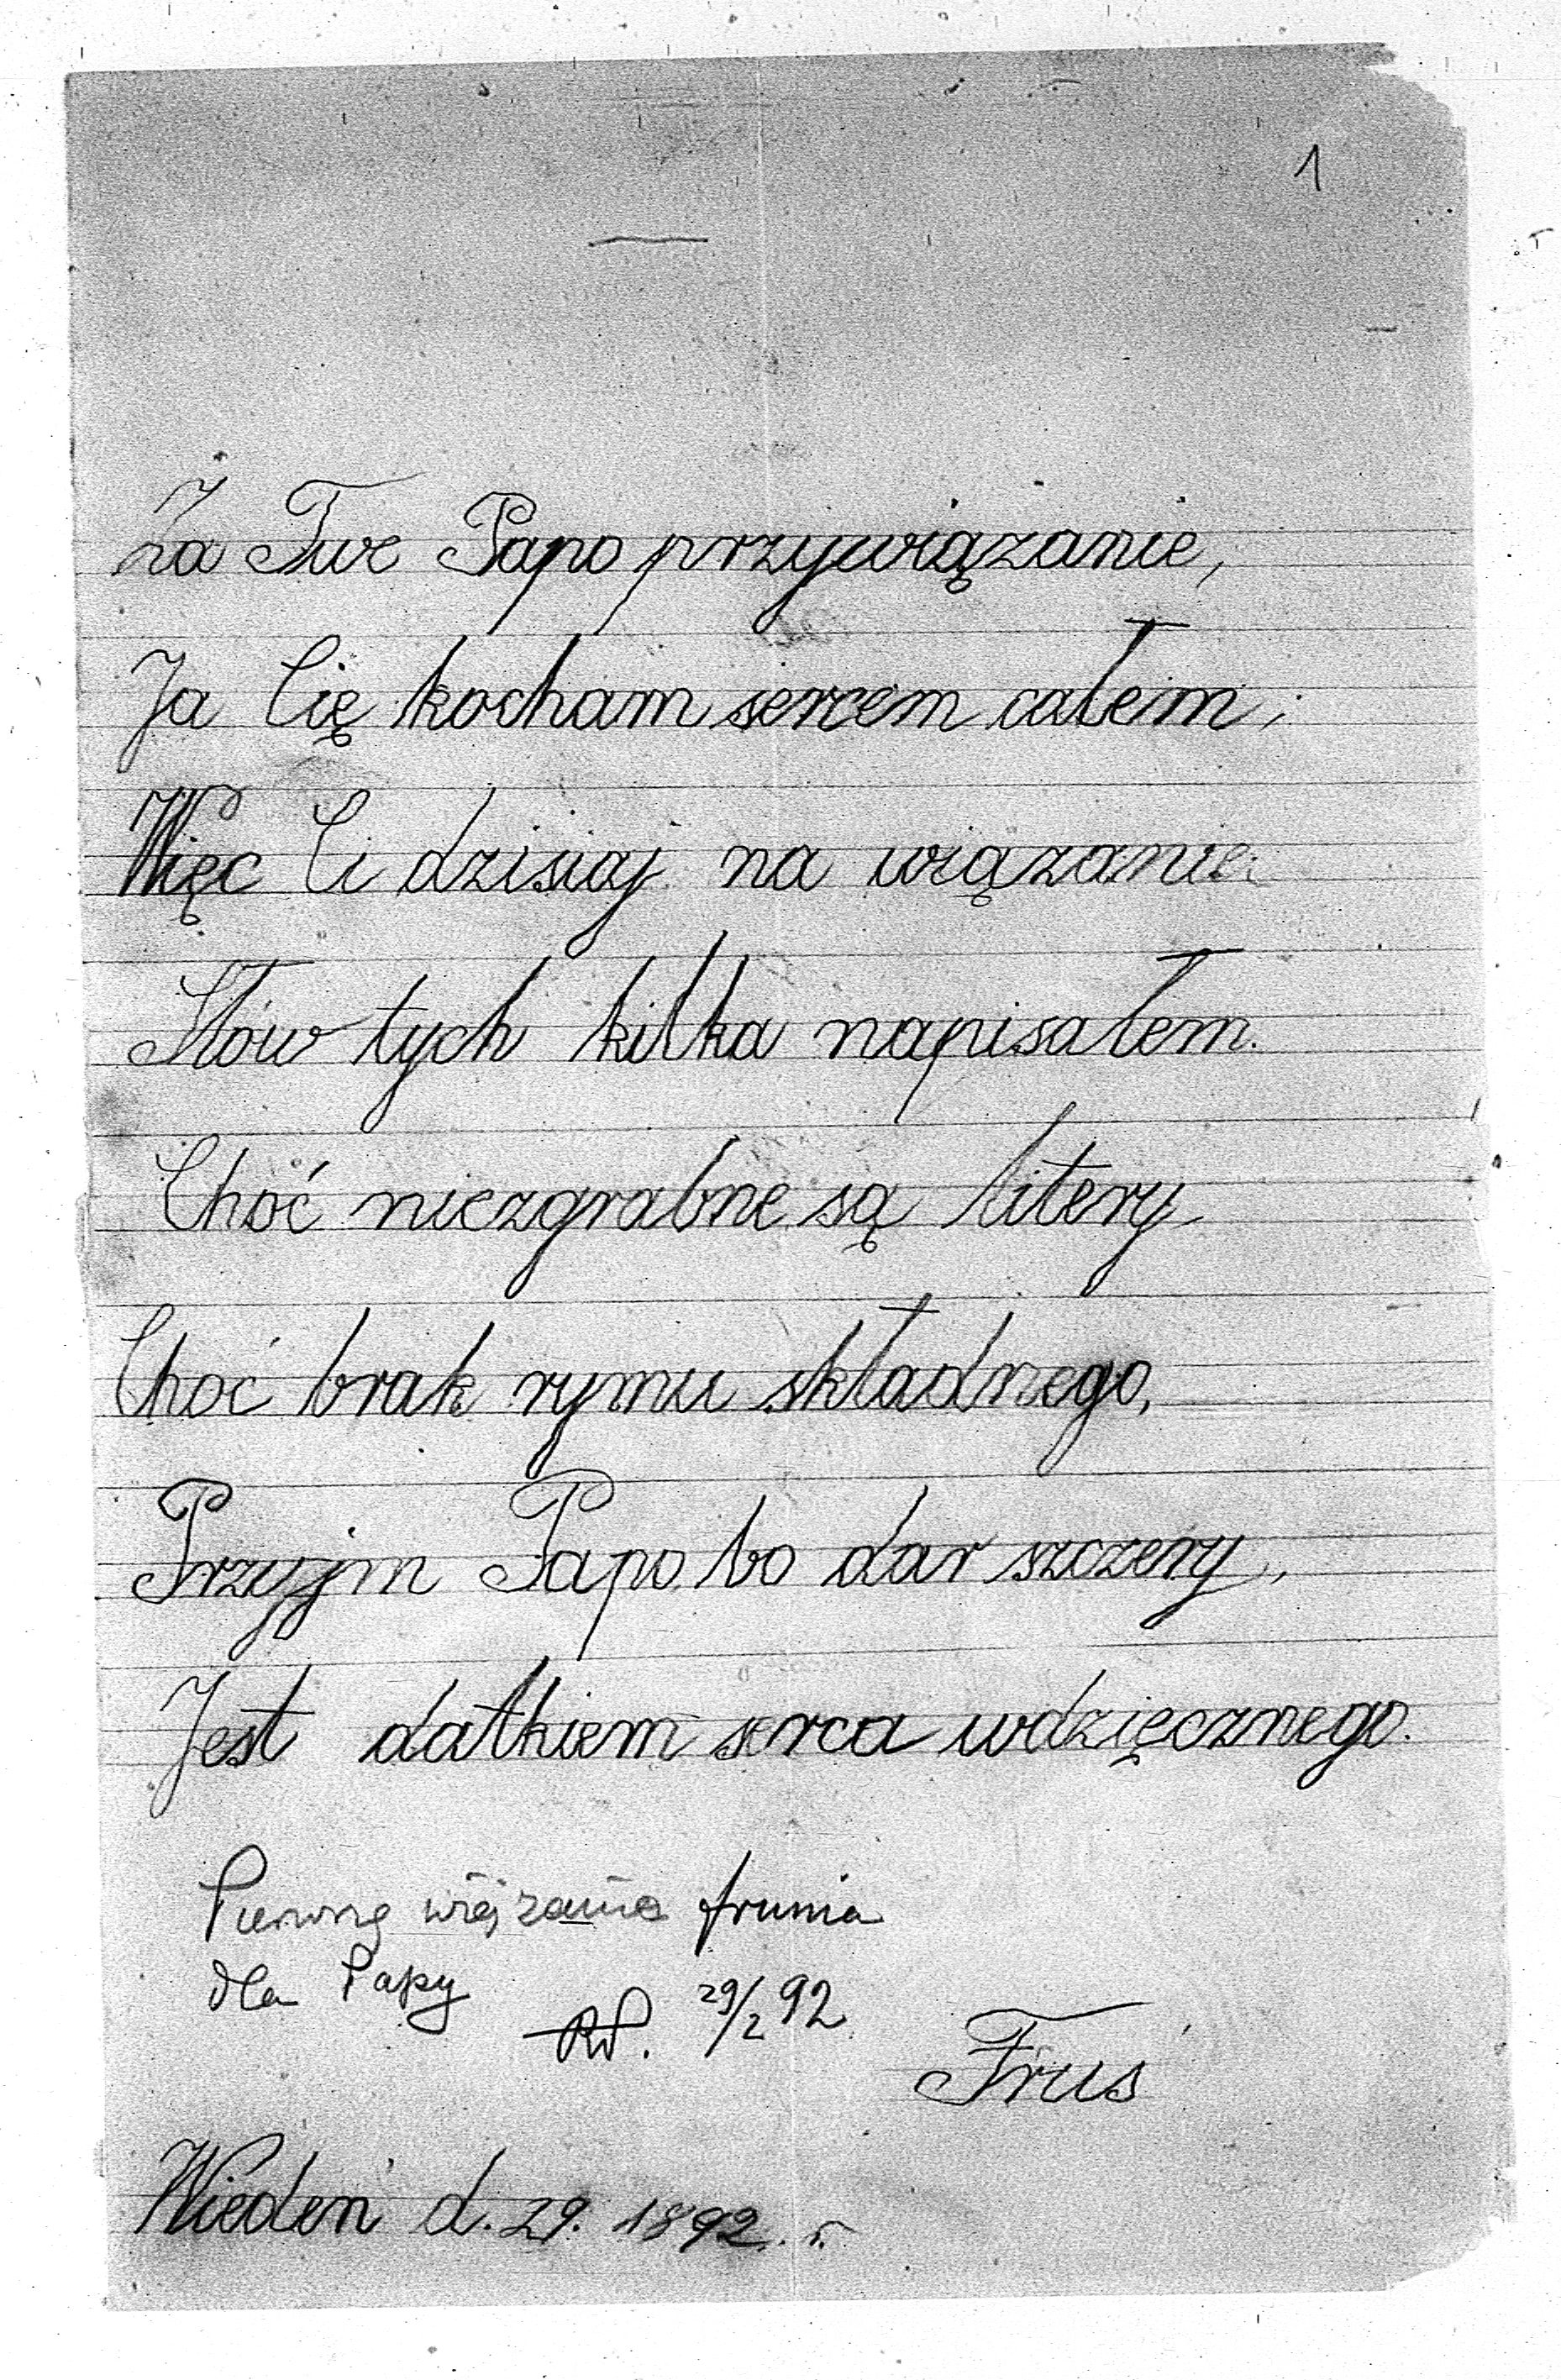 1
Za Twe Papo przywiązanie,
Ja Cię kocham sercem całem;
Więc Ci dzisiaj na wiązanie
Słów tych kilka napisałem.
Choć niezgrabne są litery
Choć brak rymu składnego,
Przyjm Papo bo dar szczery,
Jest datkiem serca wdzięcznego.
Pierwsze wiązanie Frusia
dla Papy
29/2 92
Fruś
Wiedeń d. 29. 1892. r.